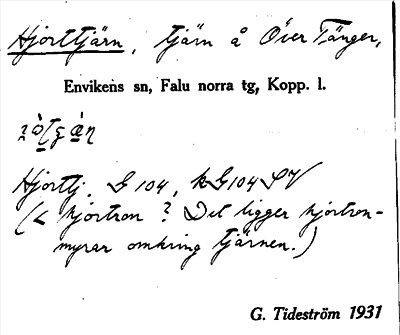 Hjorttjärn, tjärn å Över Tänger,
Envikens sn, Falu norra tg, Kopp. l.
Hjorttj. G 104, kG104SV
(< hjortron? Det ligger hjortron-
myrar omkring tjärnen.)
G. Tideström 1931